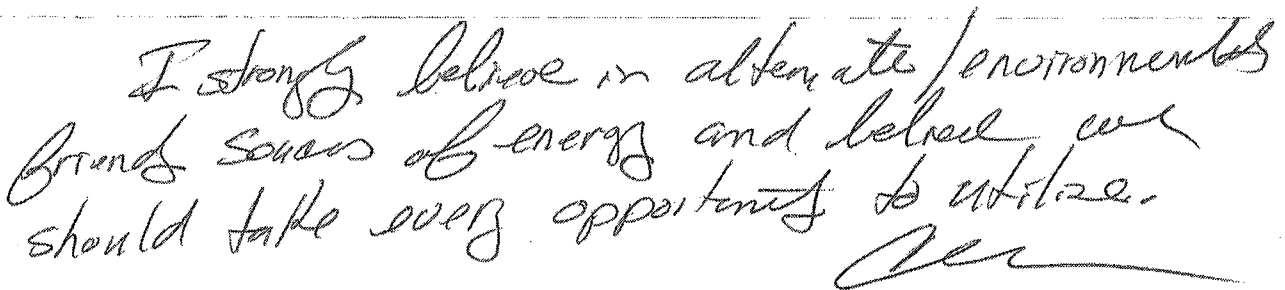 I strongly believe in alternate/environmentally
friendly sources of energy and believe we
should take every opportunity to utilize.